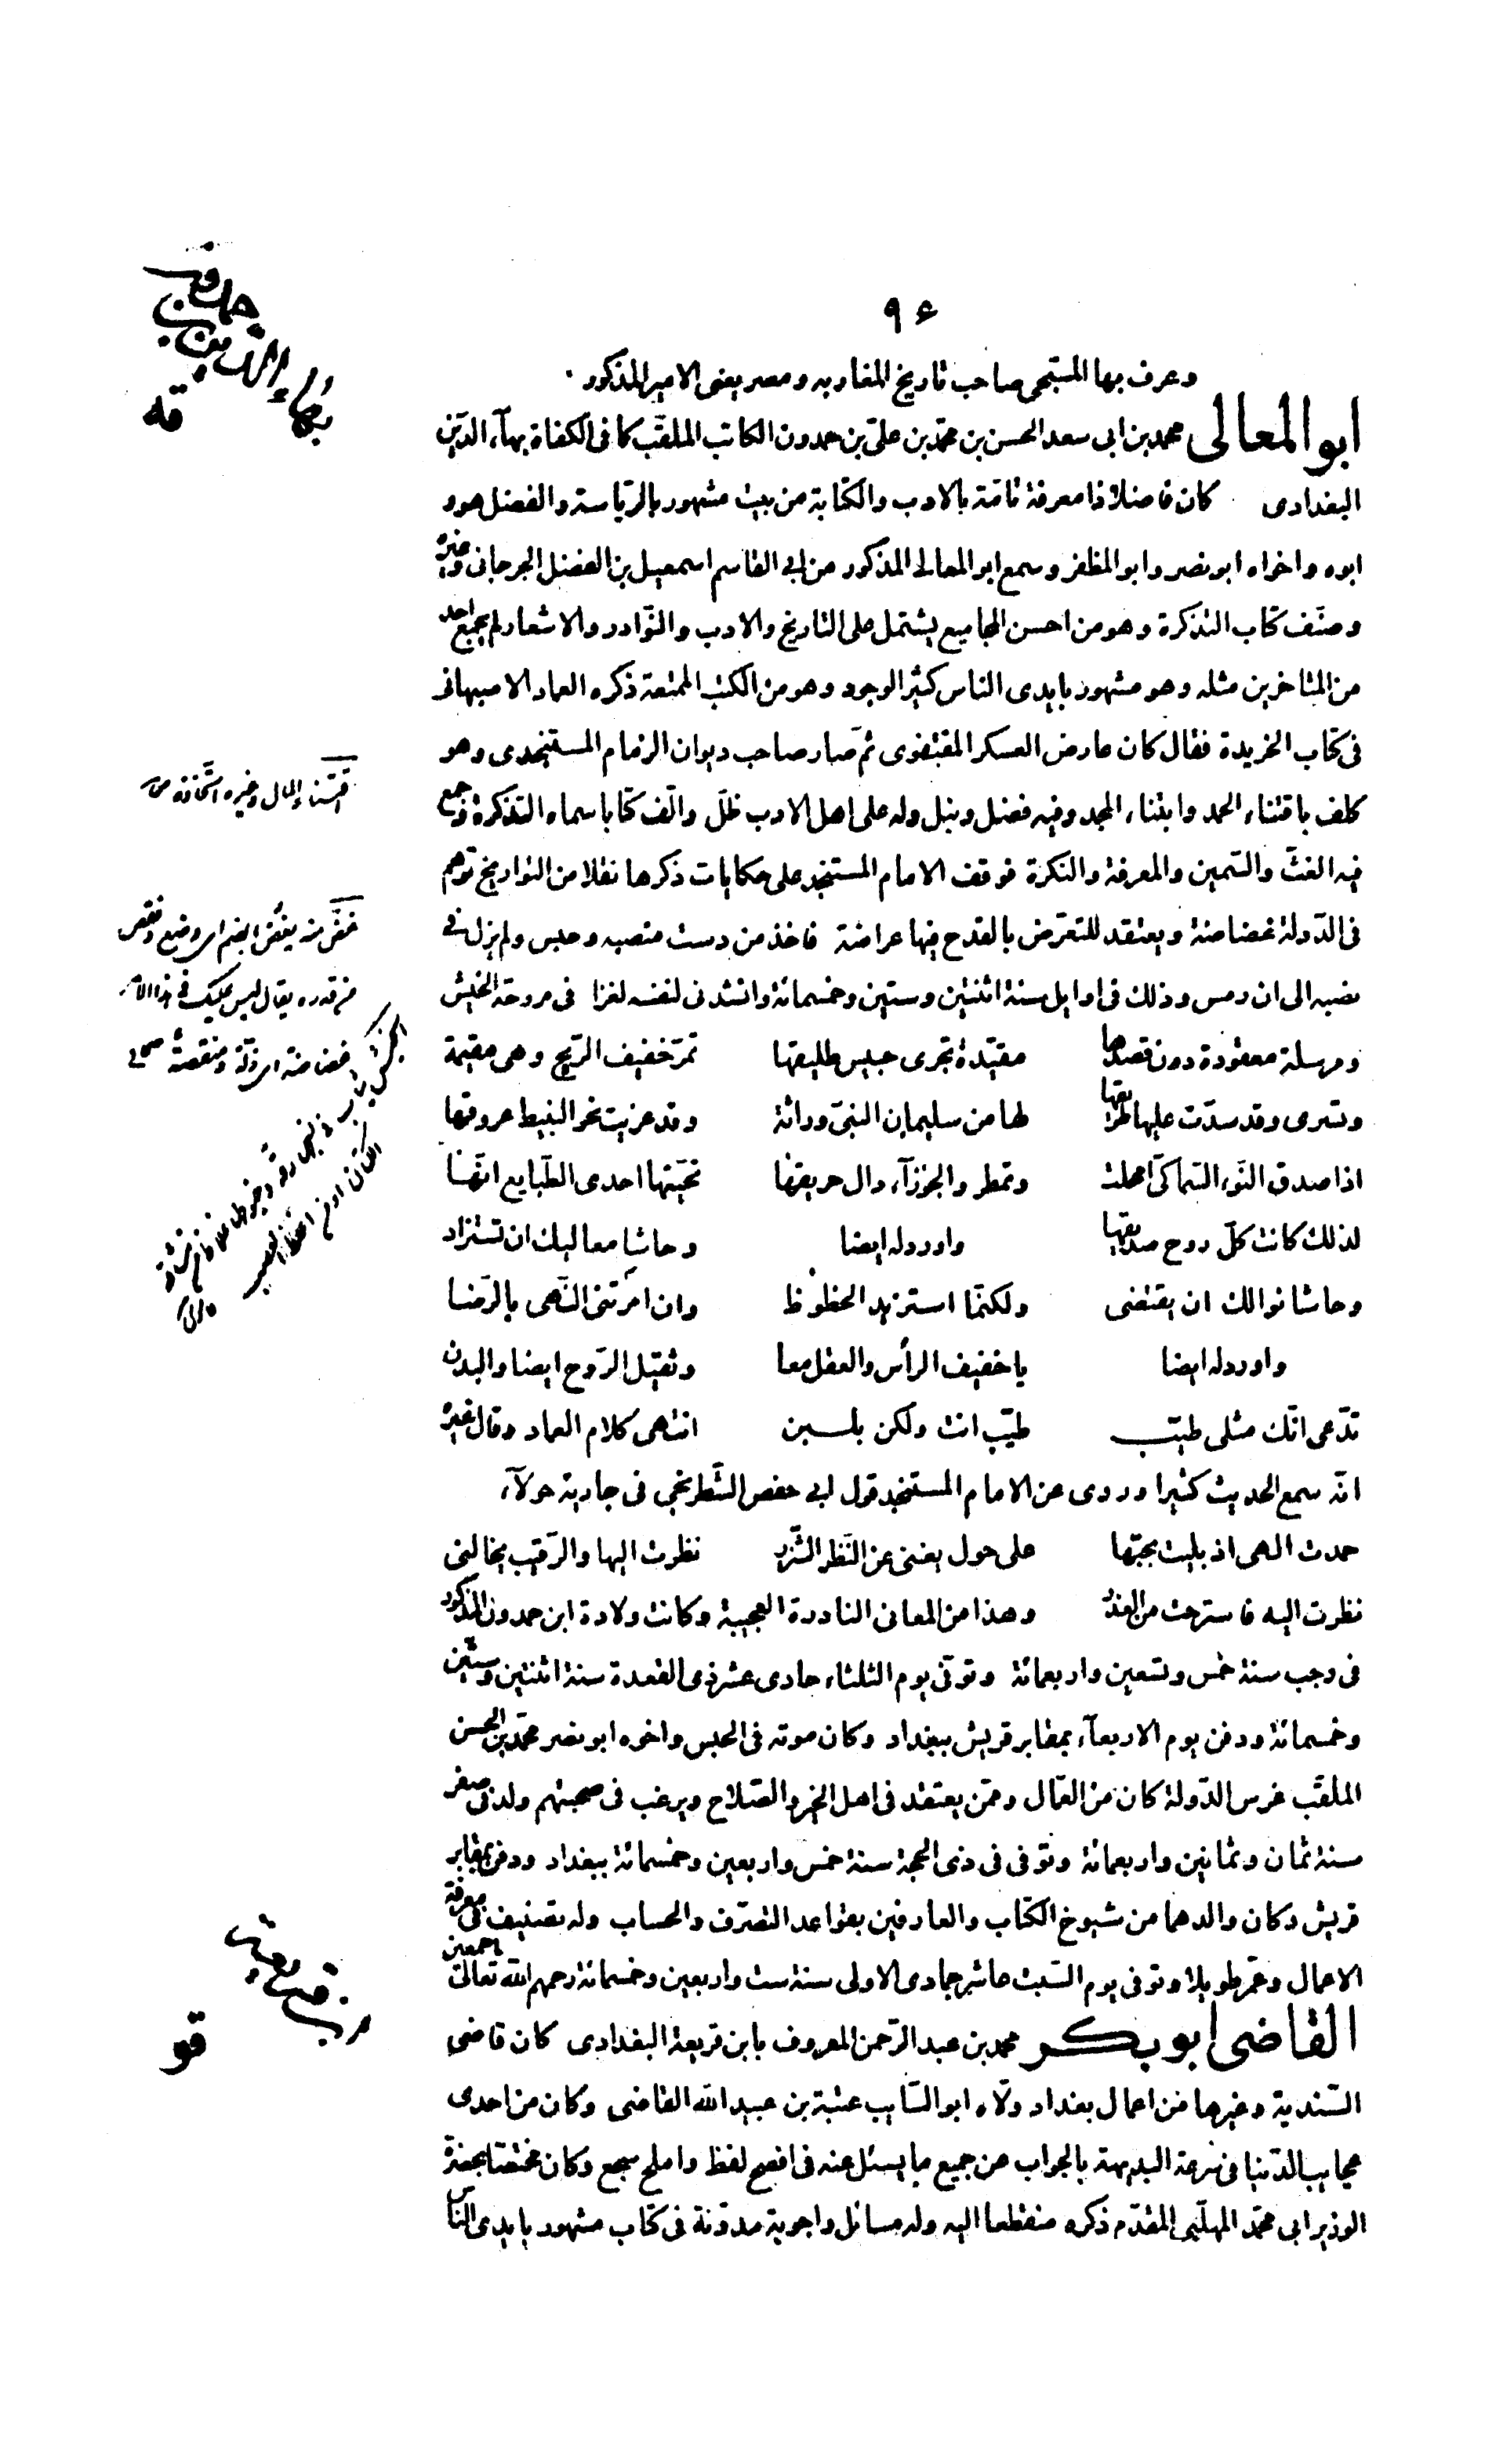 ۹۶
وعرف بها المسبحى صاحب تاريخ المغاربه ومصر يعنى الامير المذكور
ابو المعالى محمد بن ابى سعد الحسن بن محمّد بن علىّ بن حمدون الكاتب الملقّب كافى الكفاة بهآء الدّين
البغدادى كان فاضلا ذا معرفة تامّة بالادب والكتابة من بيت مشهور بالرّياسة والفضل هو و
ابوه واخواه ابو نصر وابو المظفر وسمع ابو المعالى المذكور من ابى القاسم اسمعيل بن الفضل الجرجانى وغيره
وصنّف كتاب التذكرة وهو من احسن المجاميع يشتمل على التاريخ والادب والنّوادر والاشعار لم يجمع احد
من المتاخرين مثله وهو مشهور بايدى الناس كثير الوجود وهو من الكتب الممتعة ذكره العماد الاصبهانى
فى كتاب الخريدة فقال كان عارض العسكر المقتفوى ثمّ صار صاحب ديوان الزمام المستنجدى وهو
كلف باقتناء الحمد وابتناء المجد وفيه فضل ونبل وله على اهل الادب ظلّ والّف كتابا سماه التذكرة وجمع
فيه الغثّ والسّمين والمعرفة والنكرة فوقف الامام المستنجد على حكايات ذكرها نقلا من التواريخ توهم
فى الدّولة غضاضة ويعتقد للتعرّض بالقدح فيها عراضة فاخذ من دست منصبه وحبس ولم يزل فى
نصبه الى ان رمس وذلك فى اوايل سنة اثنتين وستين وخمسمائة وانشدنى لنفسه لغزا فى مروحة الخيش
ومرسلة معقودة دون قصدها مقيّدة تجرى حبيس طليقها تمرّ خفيف الرّيح وهى مقيمة
وتسرى وقد سدّت عليها طريقها لها من سليمان النبىّ وراثة وقد عزيت نحو النبيط عروقها
اذا صدق النّوء السّماكىّ امحلت وتمطر والجوزآء ذاك حريقها تحيّتها احدى الطّبايع انّها
لذلك كانت كلّ روح صديقها واورد له ايضا وحاشا معاليك ان تستزاد
وحاشا نوالك ان يقتضى ولكنّما استزيد الحظوظ وان امرتنى النّهى بالرّضا
واورد له ايضا يا خفيف الرأس والعقل معا وثقيل الرّوح ايضا والبدن
تدّعى انّك مثلى طيّب طيّب انت ولكن بلسن انتهى كلام العماد وقال غيره
انّه سمع الحديث كثيرا وروى عن الامام المستنجد قول ابى حفص الشّطرنجى فى جارية حولآء
حمدت الهى اذ بليت بحبّها على حول يغنى عن النّظر الشّزر نظرت اليها والرّقيب يخالنى
نظرت اليه فاسترحت من العذر وهذا من المعانى النادرة العجيبة وكانت ولادة ابن حمدون المذكور
فى رجب سنة خمس وتسعين واربعمائة وتوفّى يوم الثلثاء حادى عشر ذى القعدة سنة اثنتين وستّين
وخمسمائة ودفن يوم الاربعآء بمقابر قريش ببغداد وكان موته فى الحبس واخوه ابو نصر محمّد بن الحسن
الملقّب غرس الدّولة كان من العمّال وممّن يعتقد فى اهل الخير والصّلاح ويرغب فى صحبتهم ولد فى صفر
سنة ثمان وثمانين واربعمائة وتوفى فى ذى الحجة سنة خمس واربعين وخمسمائة ببغداد ودفن بمقابر
قريش وكان والدهما من شيوخ الكتّاب والعارفين بقواعد التصرّف والحساب وله تصنيف فى معرفة
الاعمال وعمّر طويلا وتوفى يوم السّبت عاشر جمادى الاولى سنة ست واربعين وخمسمائة رحمهم اللّه تعالى اجمعين
القاضى ابو بكر محمد بن عبد الرّحمن المعروف بابن قريعة البغدادى كان قاضى
السّندية وغيرها من اعمال بغداد ولّاه ابو السّايب عتبة بن عبيد اللّه القاضى وكان من احدى
عجايب الدّنيا فى سرعة البديهة بالجواب عن جميع ما يسئل عنه فى افصح لفظ واملح سجع وكان مختصّا بحضرة
الوزير ابى محمّد المهلّبى المقدّم ذكره منقطعا اليه وله مسائل واجوبة مدوّنة فى كتاب مشهور بايدى النّاس
بهاء الدين بن
قه
اقتناء المال وغيره اتّخاذه
غضّ منه يغضّ بالضم اى وضع ونقص
من قدره يقال ليس عليك فى هذا الامر
غضاضة اى ذلّة ومنقصة
ابن قريعة
قو